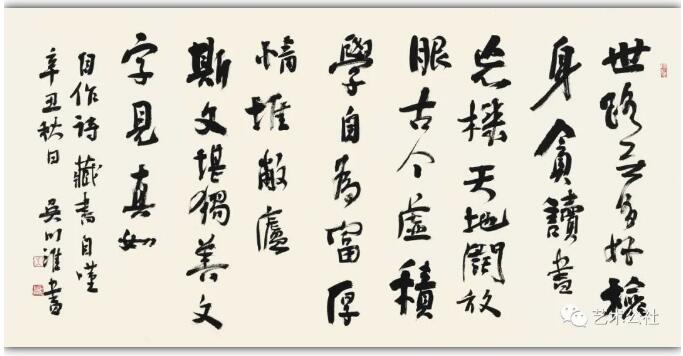 世路无多好檢
身貪讀書
忘機天地闊放
眼古今虛積
學自為富厚
情堆敝廬
斯文堪獨善文
字見真如
自作詩藏書自嘆
辛丑秋日 吳川淮書
艺术公社